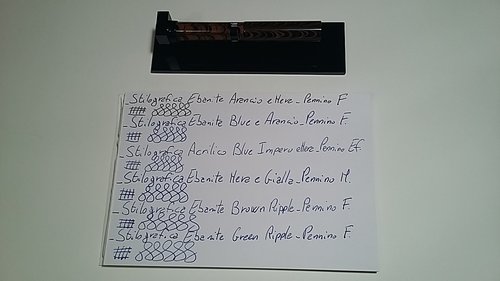 _Stilografica Ebanite Arancio e Nera_Pennino F
_Stilografica Ebanite Blue e Arancio_Pennino F.
_Stilografica Acrilico Blue Impero e Nera_Pennino EF.
_Stilografica Ebanite Nera e Gialla_Pennino M.
_Stilografica Ebanite Brown Ripple_Pennino F.
_Stilografica Ebanite Green Ripple_Pennino F.